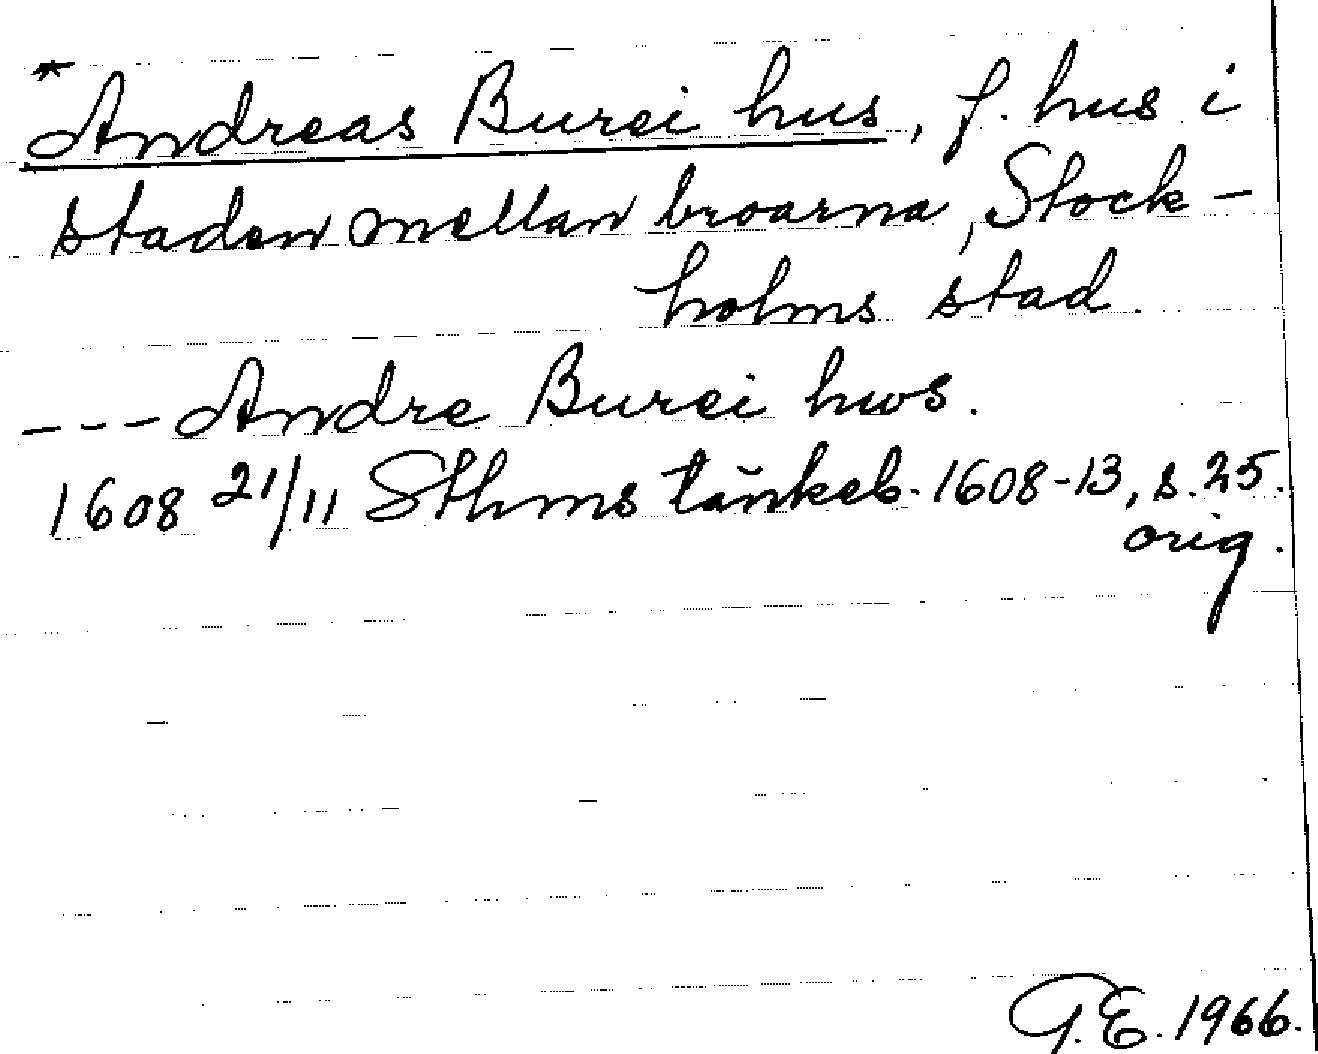 *Andreas Burei hus, f. hus i
staden mellan broarna, Stock-
holms stad.
--- Andre Burei hws.
1608 21/11 Sthms tänkeb. 1608-13, s. 25.
orig.
G.E. 1966.